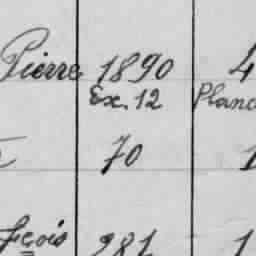 Pierre 1890 4
Ex. 12 Planc
70 1
fçois 281 1